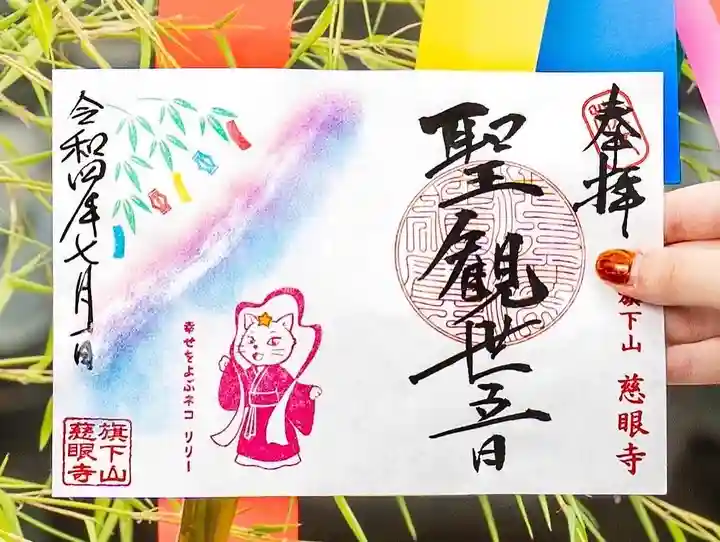 奉拝
旗下山 慈眼寺
聖観世音
令和四年七月一日
幸せをよぶネコ リリー
旗下山
慈眼寺